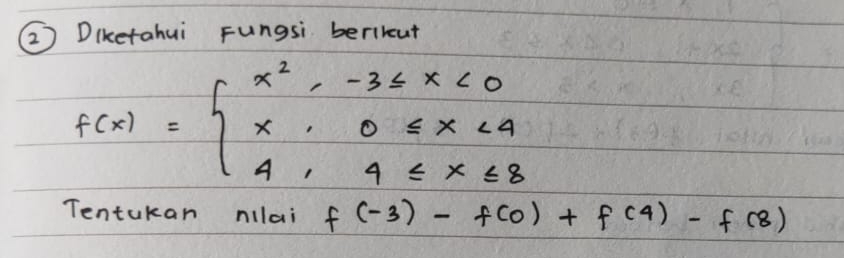 ② Diketahui Fungsi berikut
x², -3 ≤ x < 0
f(x) = { x, 0 ≤ x < 4
4, 4 ≤ x ≤ 8
Tentukan nilai f(-3) - f(0) + f(4) - f(8)